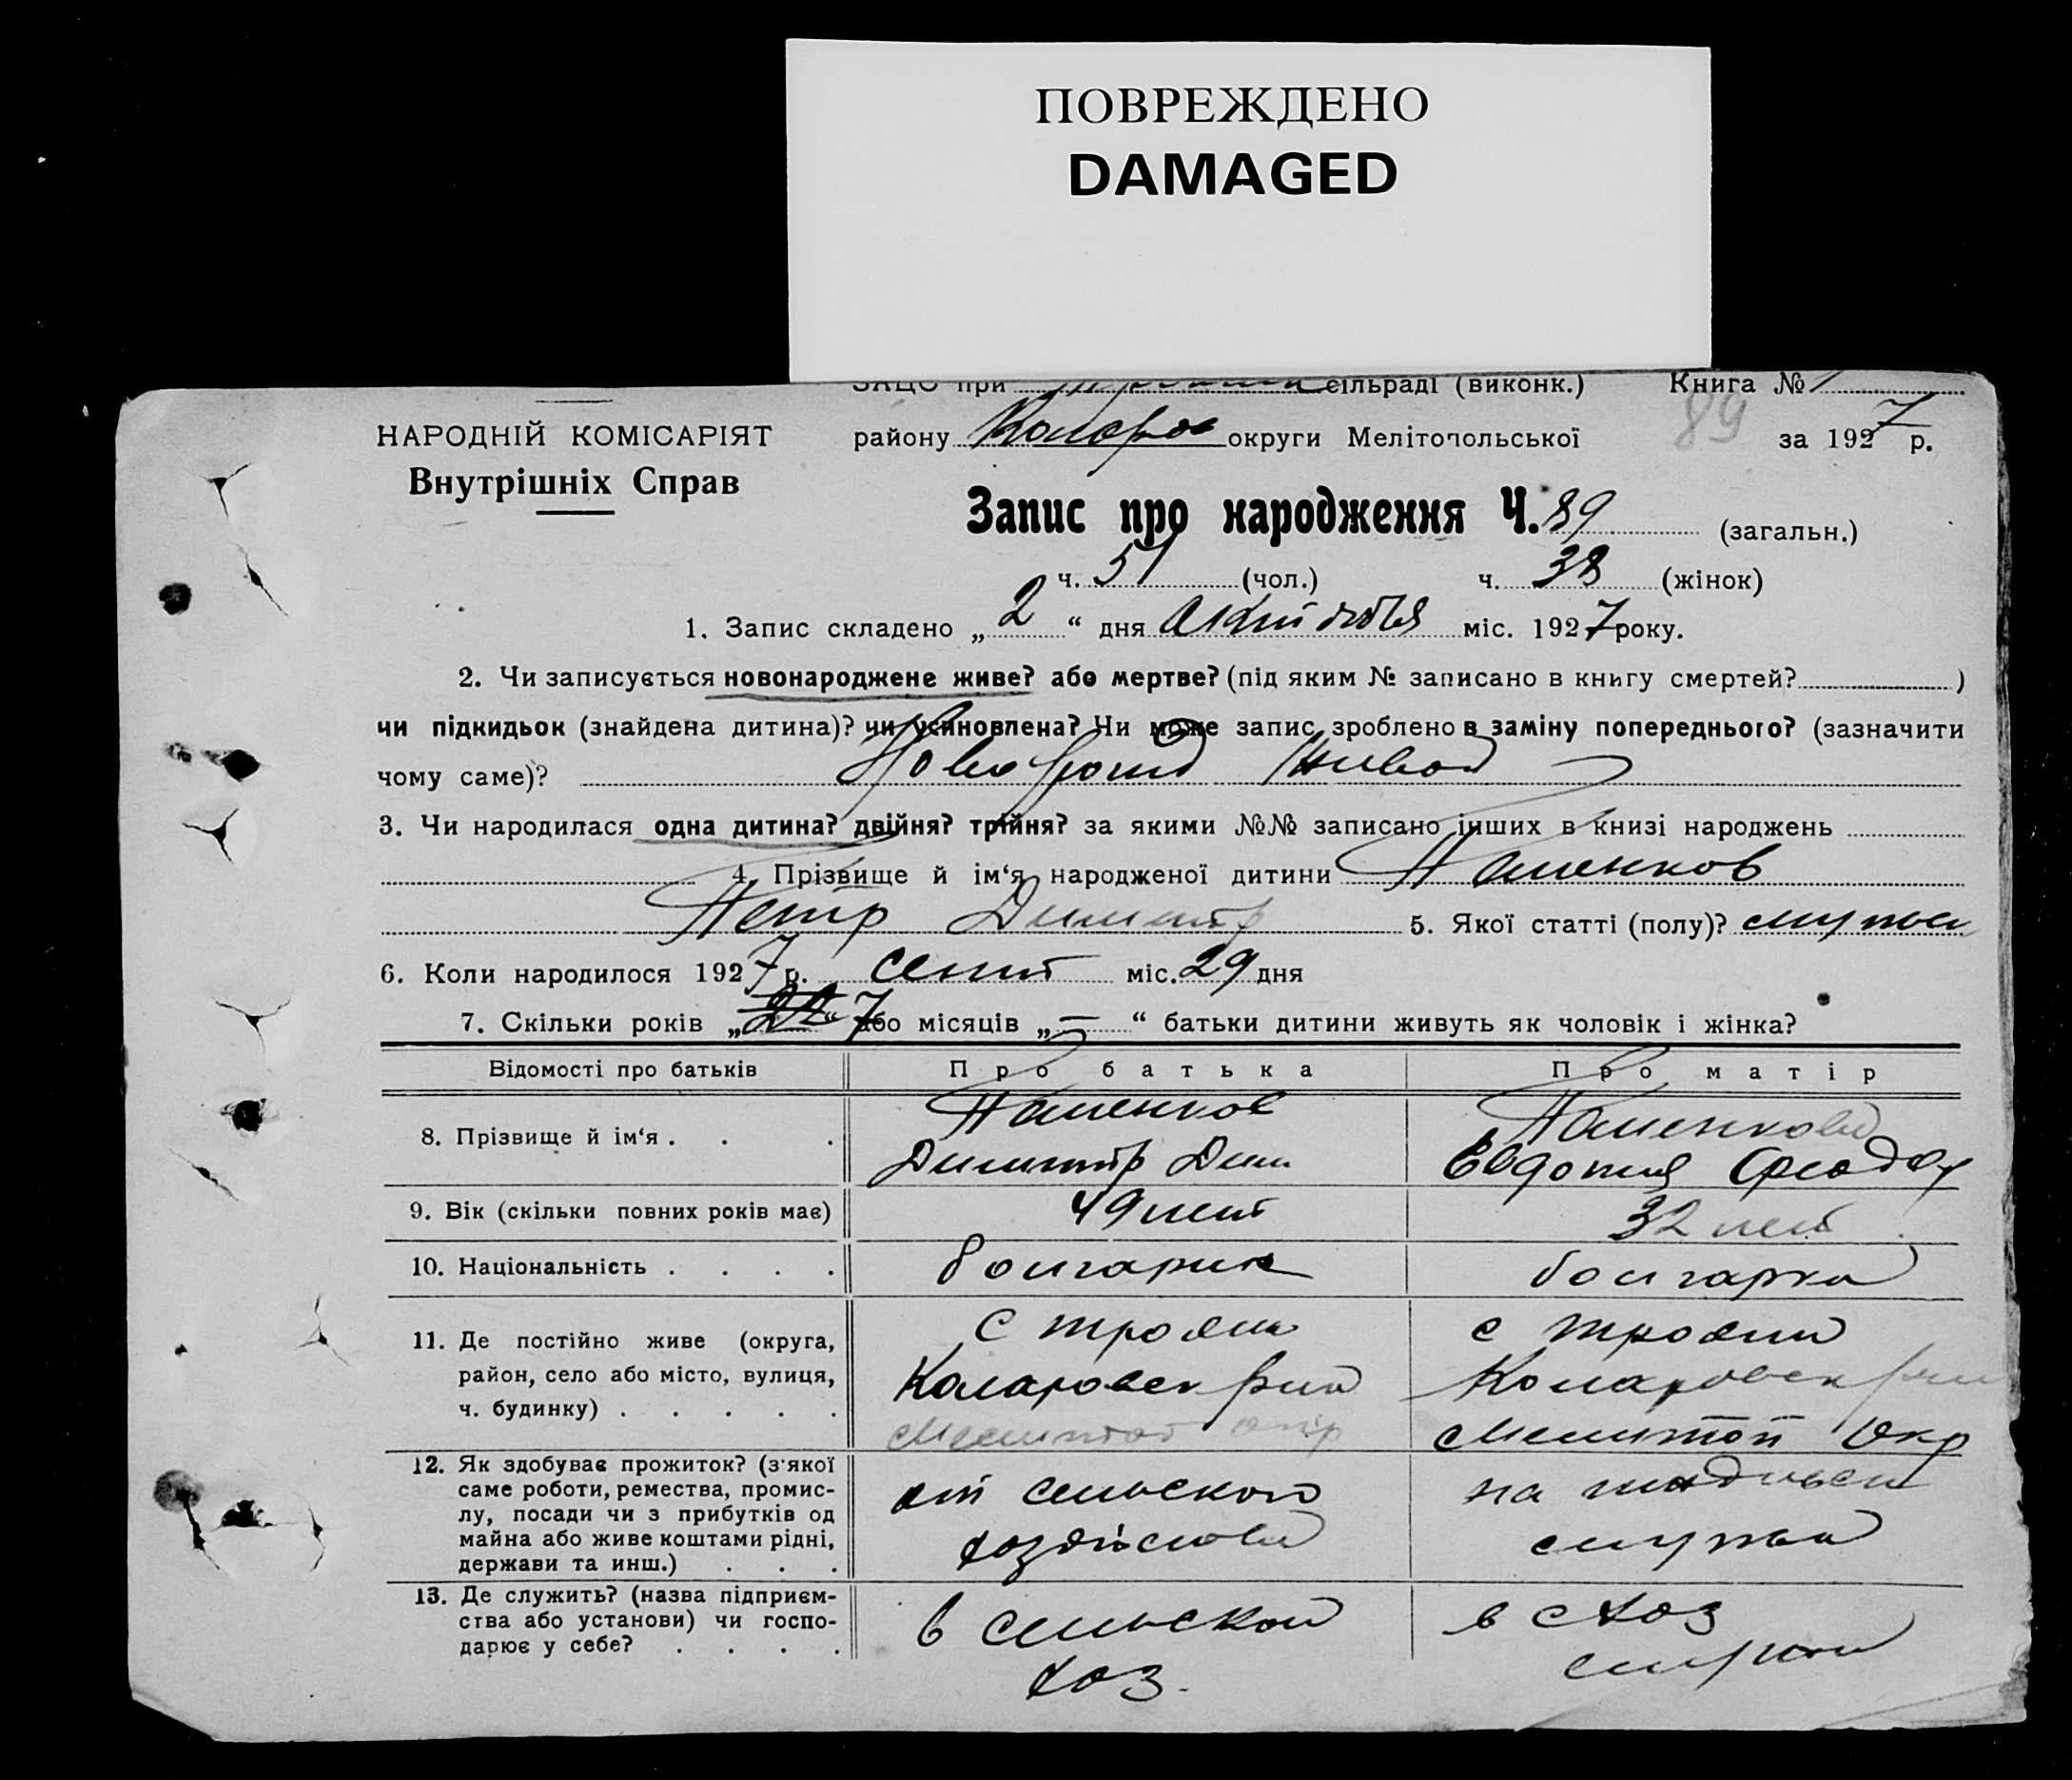 ПОВРЕЖДЕНО
DAMAGED
ЗАЦС при сільраді (виконк.) Книга № 1
НАРОДНІЙ КОМІСАРІЯТ
Внутрішніх Справ
району Коларов округи Мелітопольської 89 за 1927 р.
Запис про народження Ч. 89 (загальн.)
ч. 51 (чол.) ч. 38 (жінок)
1. Запис складено „ 2 “ дня Октября міс. 1927 року.
2. Чи записується новонароджене живе? або мертве? (під яким № записано в книгу смертей? )
чи підкидьок (знайдена дитина)? чи усиновлена? Чи може запис зроблено в заміну попереднього? (зазначити
чому саме)? Живой
3. Чи народилася одна дитина? двійня? трійня? за якими №№ записано інших в книзі народжень
4. Прізвище й ім‘я народженої дитини Пашенков
Петр Димитр 5. Якої статті (полу)? мужск
6. Коли народилося 1927 р. Сент міс. 29 дня
7. Скільки років „ 7 “ або місяців „ — “ батьки дитини живуть як чоловік і жінка?
Відомості про батьків Про батька Про матір
8. Прізвище й ім‘я . . . Пашенков Пашенкова
Димитр Дим Евдокия Феодор
9. Вік (скільки повних років має) 49 лет 32 лет
10. Національність . . . . болгарин болгарка
11. Де постійно живе (округа, район, село або місто, вулиця, ч. будинку) . . . . .
С Трояны с Трояны
Коларовск рай Коларовск рай
Мелитоп окр Мелитоп Окр
12. Як здобуває прожиток? (з‘якої саме роботи, ремества, промислу, посади чи з прибутків од майна або живе коштами рідні, держави та инш.) . . .
от сельского на иждивен
хозяйства мужа
13. Де служить? (назва підприємства або установи) чи господарює у себе? . . . .
в сельском в с хоз
хоз. мужа